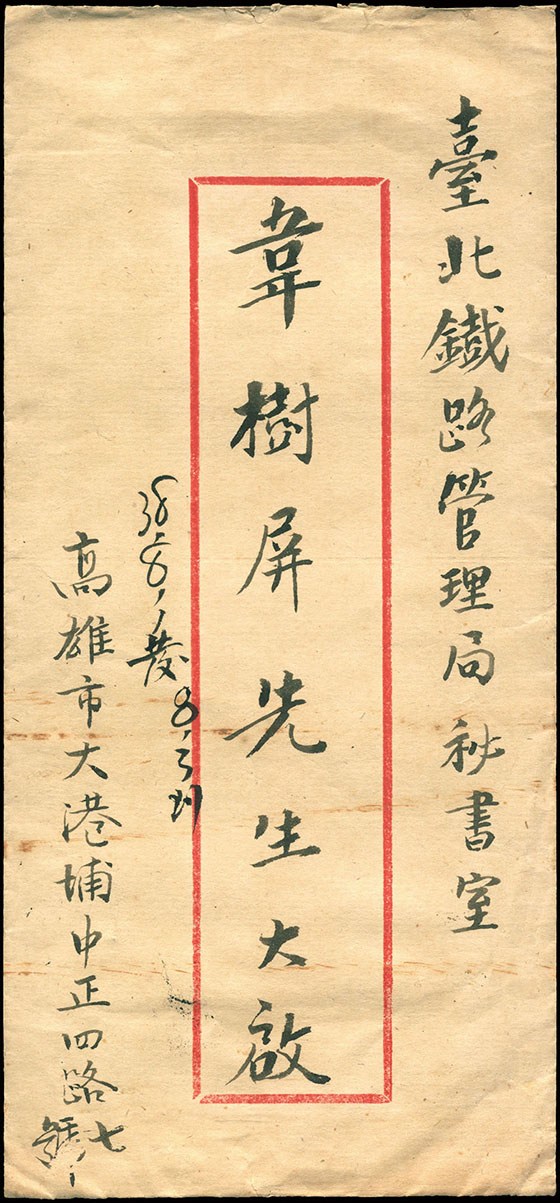 臺北鐵路管理局祕書室
韋樹屏先生大啟
38.8.1發 8.3到
高雄市大港埔中正四路七號